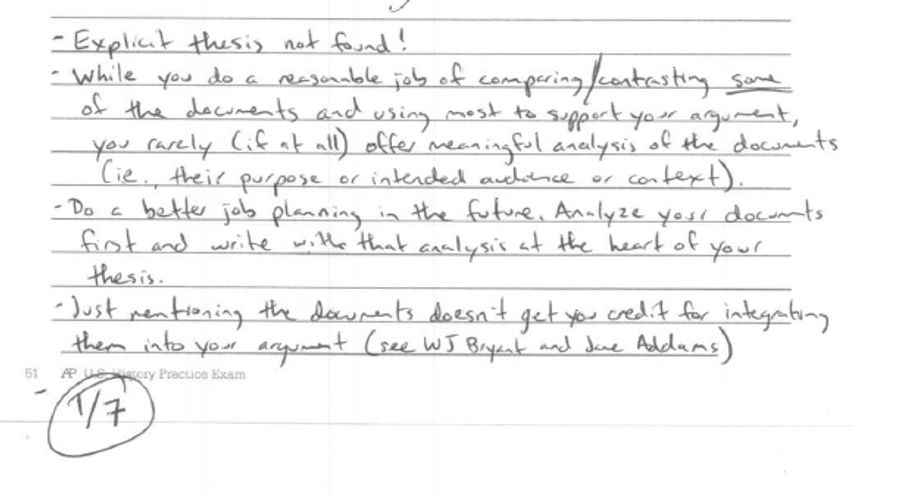 - Explicit thesis not found!
- While you do a reasonable job of comparing/contrasting some
of the documents and using most to support your argument,
you rarely (if at all) offer meaningful analysis of the documents
(ie., their purpose or intended audience or context).
- Do a better job planning in the future. Analyze your documents
first and write with that analysis at the heart of your
thesis.
- Just mentioning the documents doesn't get you credit for integrating
them into your argument (see WJ Bryant and Jane Addams)
51 AP U.S. History Practice Exam
1/7